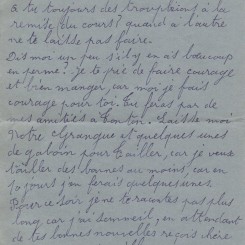 a tu toujours des trouplainf à la
remise du cours? quand a l'autre
ne te laisse pas faire.
Dis moi un peu s'il y en a's beaucoup
en perme? Je te prie de faire courage
et bien manger, car moi je fais
courage pour toi. Tu feras par de
mes amitiés a Tonton. Laisse moi
Notre Grangue et quelques unes
de gaboin pour tailler, car je veux
tailler des barnes au moins, car en
10 jours j'en ferais quelques unes.
Pour ce soir je ne te racontes pas plus
long car j'ai sommeil, en attendant
de tes bonnes nouvelles reçois chérie